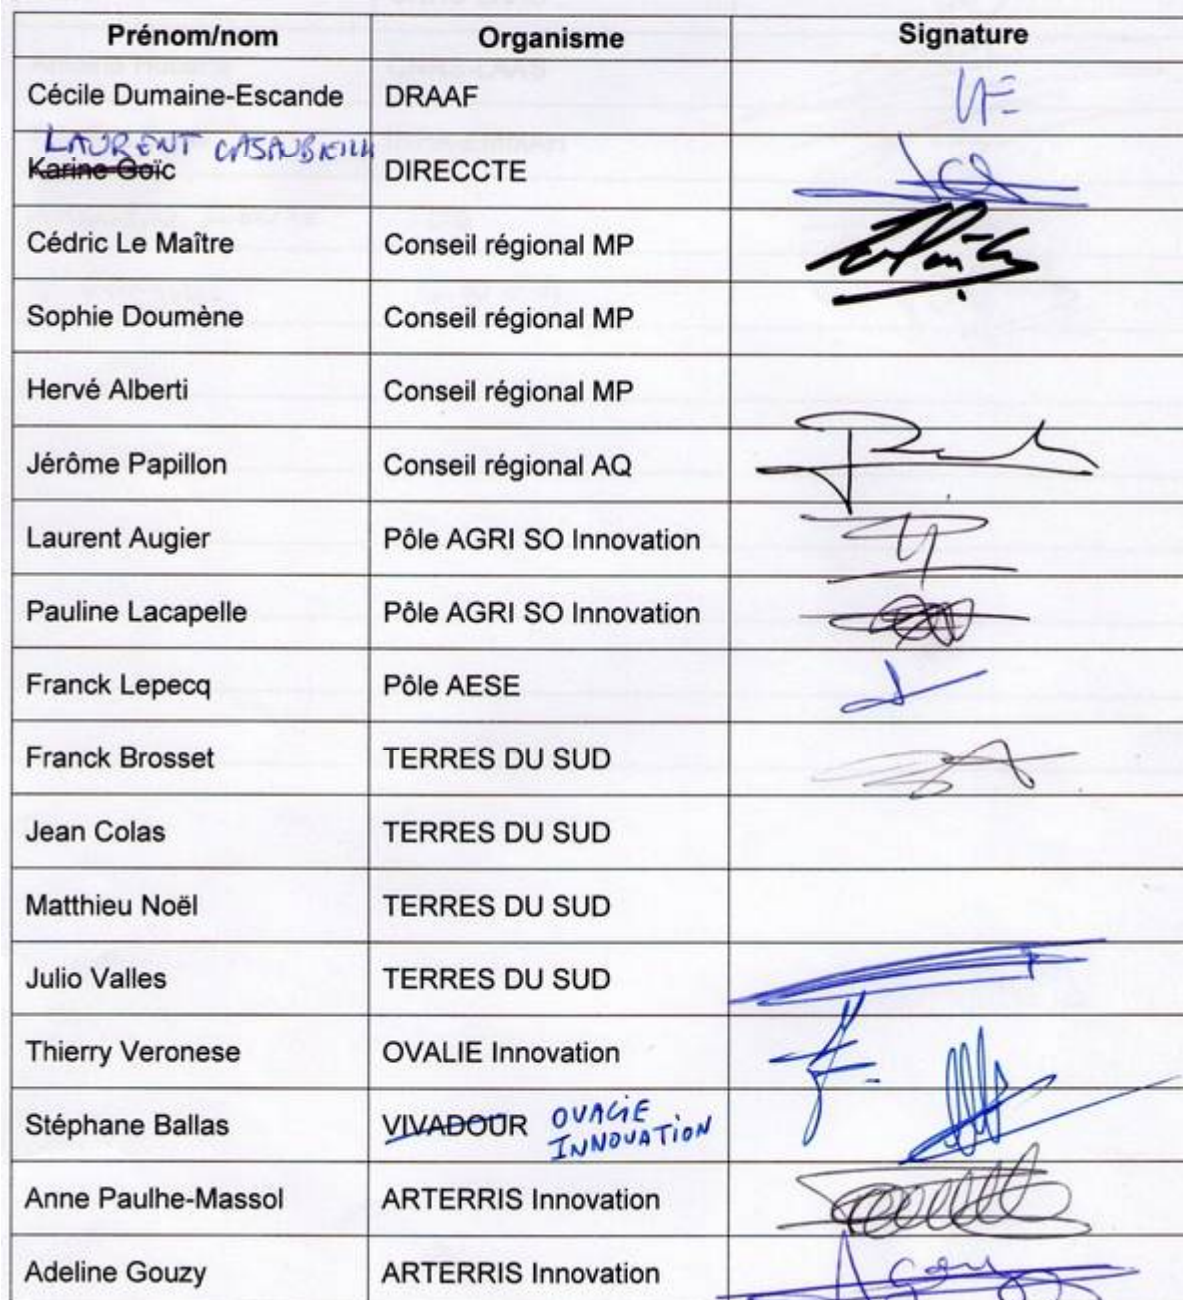 Prénom/nom Organisme Signature
Cécile Dumaine-Escande DRAAF
LAURENT CASAUBIEILH
Karine Goïc DIRECCTE
Cédric Le Maître Conseil régional MP
Sophie Doumène Conseil régional MP
Hervé Alberti Conseil régional MP
Jérôme Papillon Conseil régional AQ
Laurent Augier Pôle AGRI SO Innovation
Pauline Lacapelle Pôle AGRI SO Innovation
Franck Lepecq Pôle AESE
Franck Brosset TERRES DU SUD
Jean Colas TERRES DU SUD
Matthieu Noël TERRES DU SUD
Julio Valles TERRES DU SUD
Thierry Veronese OVALIE Innovation
Stéphane Ballas VIVADOUR OVALIE
INNOVATION
Anne Paulhe-Massol ARTERRIS Innovation
Adeline Gouzy ARTERRIS Innovation